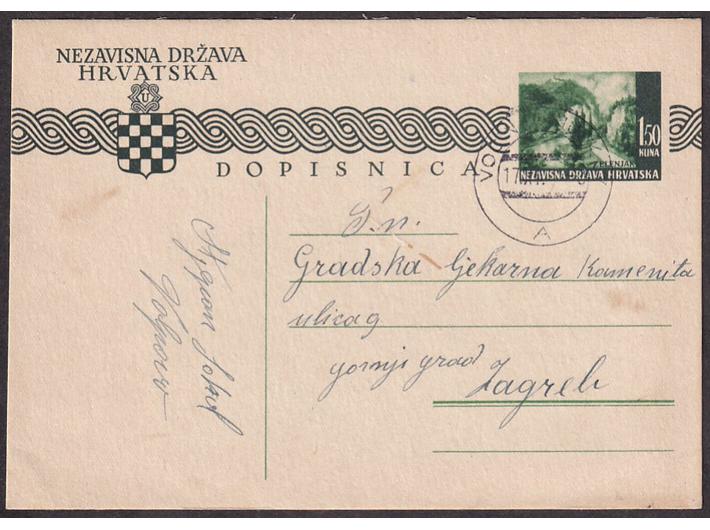 NEZAVISNA DRŽAVA
HRVATSKA
U
DOPISNICA
1'50
KUNA
ZELENJAK
NEZAVISNA DRŽAVA HRVATSKA
17
A
Gradska ljekarna Kamenita
ulica 9
gornji grad
Zagreb